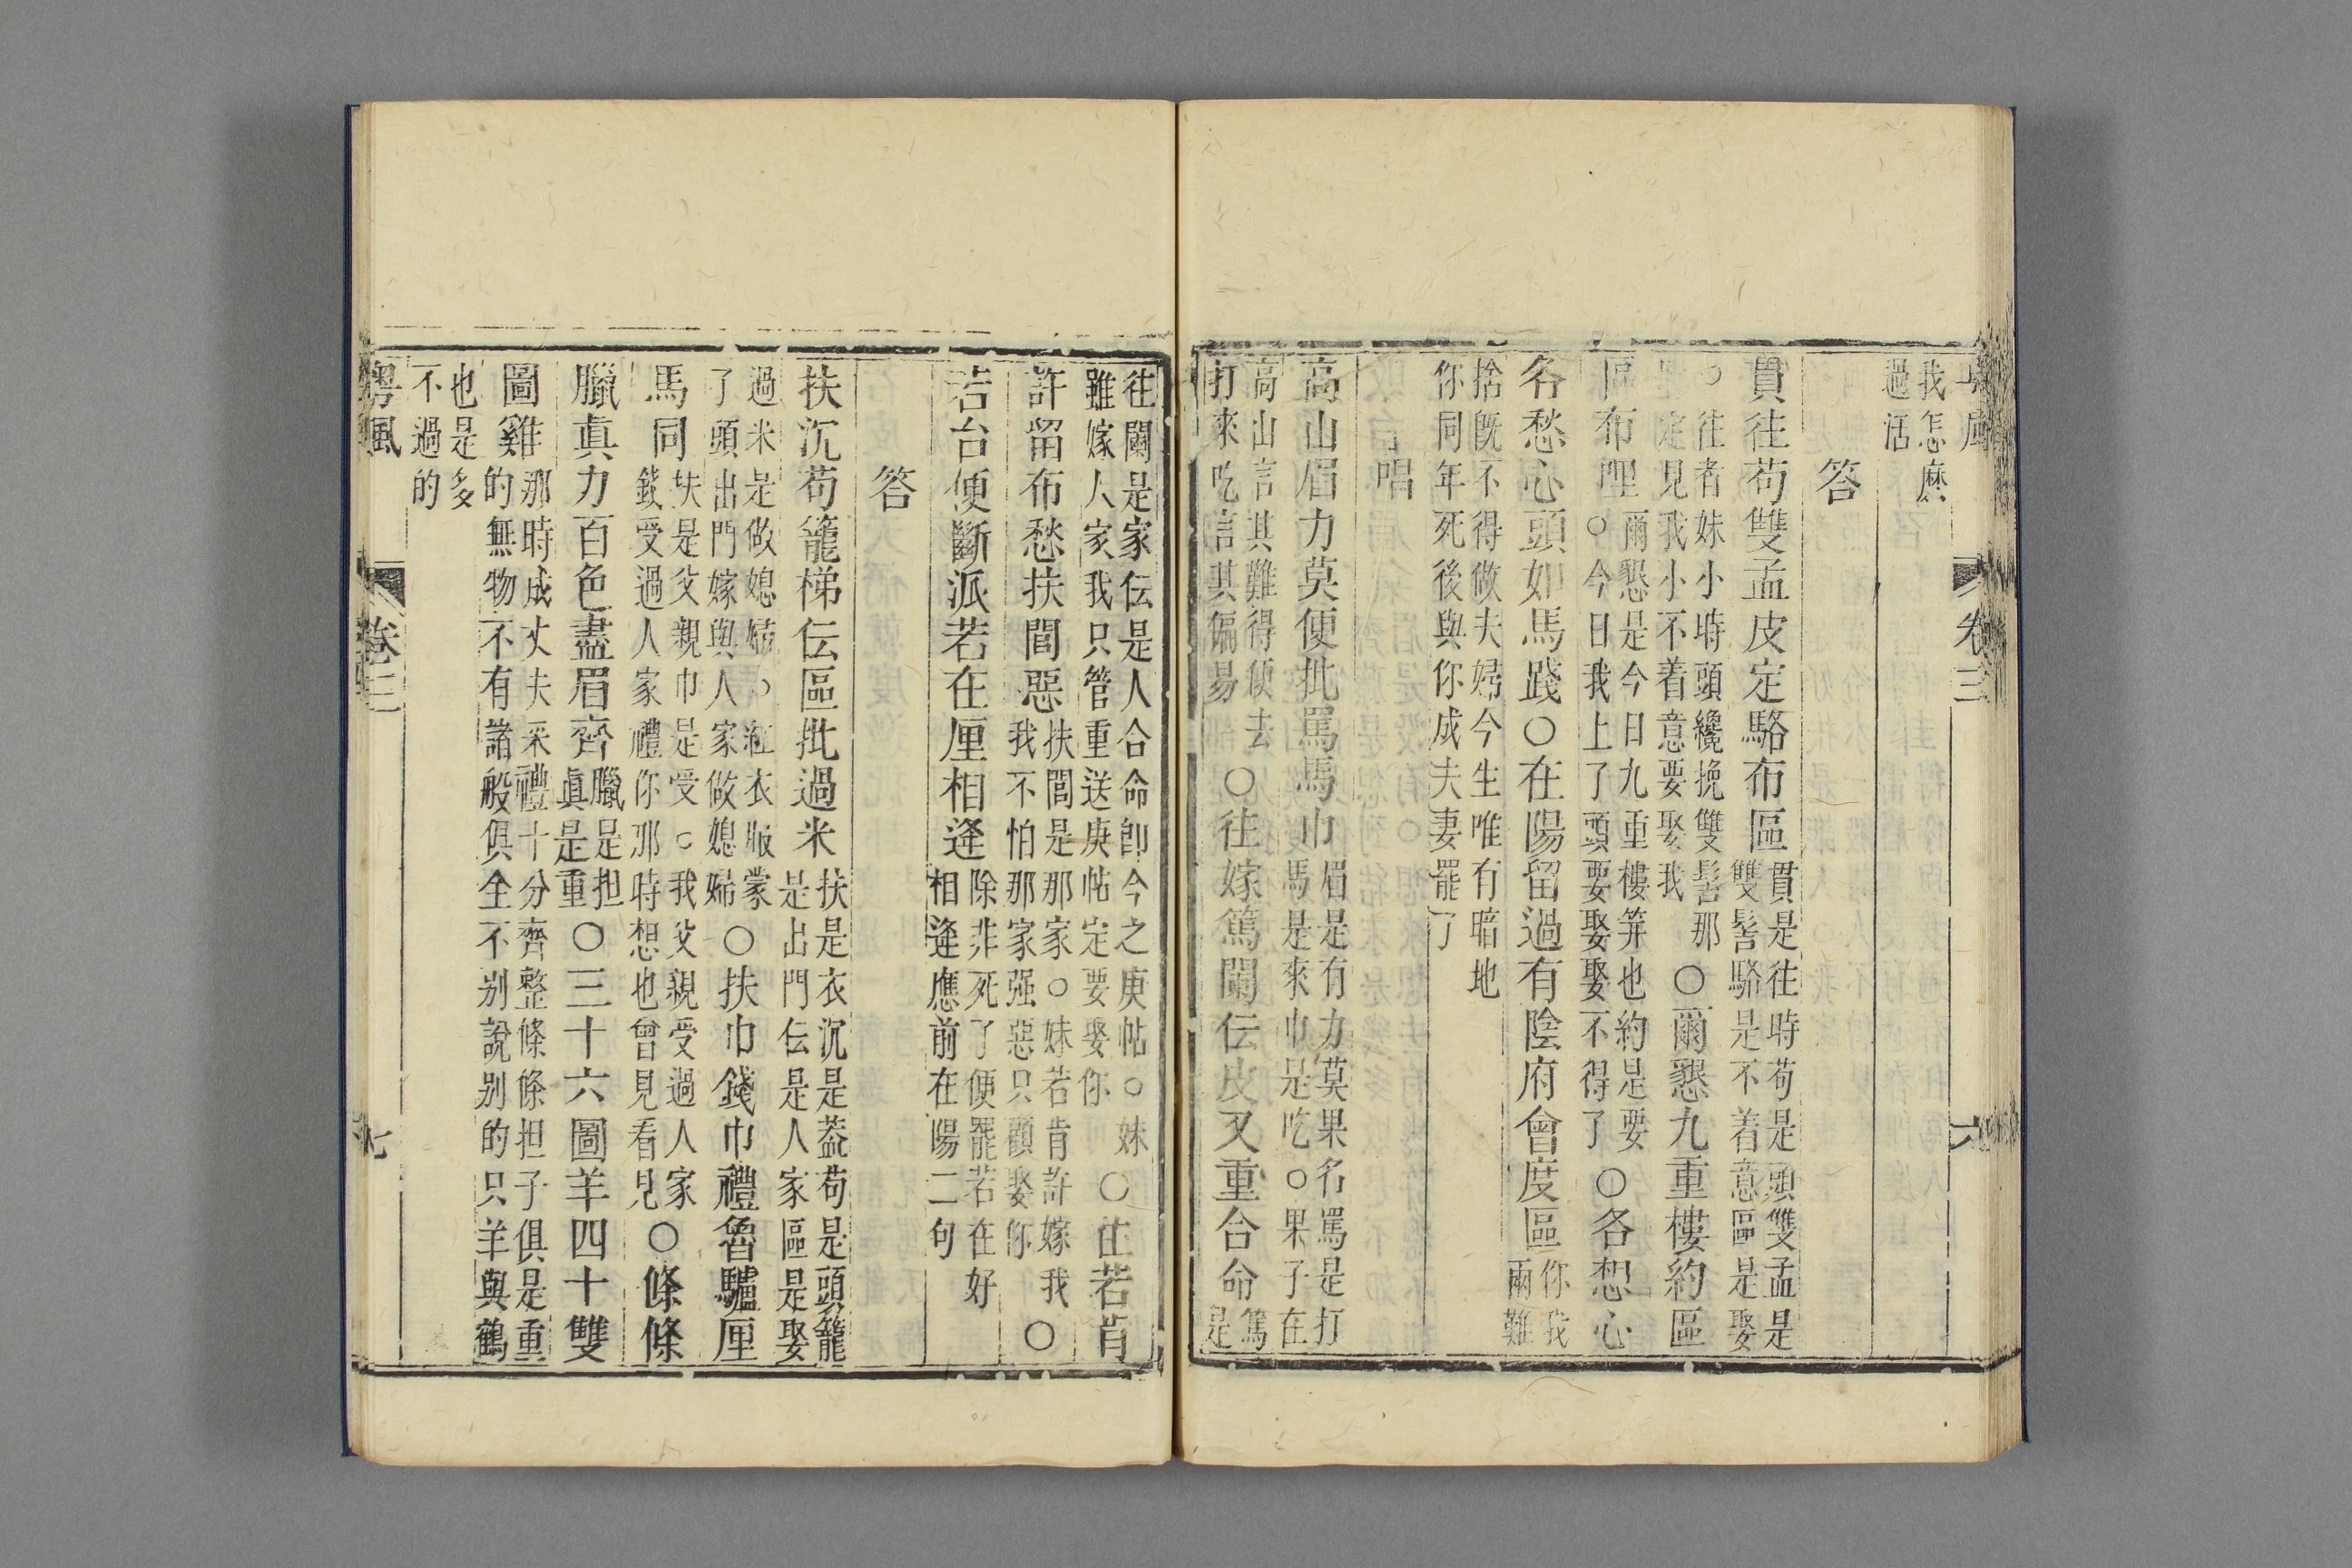 粵風 卷三 六
我怎麽
過活
答
貫往苟雙孟皮定駱布區 貫是往時苟是頭雙孟是
雙髻駱是不着意區是娶
○往者妹小時頭纔挽雙髻那
定見我小不着意要娶我 ○爾懇九重樓約區
區布哩 爾懇是今日九重樓筭也約是要
○今日我上了頭要娶娶不得了 ○各想心
各愁心頭如馬踐○在陽留過有陰府會度區 你我
兩難
捨旣不得做夫婦今生唯有暗地
你同年死後與你成夫妻罷了
唱
高山眉力莫便批罵馬巾 眉是有力莫果名罵是打
馬是來巾是吃○果子在
高山言其難得便去
打來吃言其偏易 ○往嫁篤闌伝皮又重合命 篤
是
往闌是家伝是人合命卽今之庚帖○妹
雖嫁人家我只管重送庚帖定要娶你 ○往若肯
許留布愁扶閭惡 扶閭是那家○妹若肯許嫁我
我不怕那家强惡只顧娶你 ○
若台便斷派若在厘相逢 除非死了便罷若在好
相逢應前在陽二句
答
扶沉苟籠梯伝區批過米 扶是衣沉是葢苟是頭籠
是出門伝是人家區是娶
過米是做媳婦○紅衣服蒙
了頭出門嫁與人家做媳婦 ○扶巾錢巾禮魯驢厘
馬同 扶是父親巾是受○我父親受過人家
錢受過人家禮你那時想也曾見看見 ○條條
臘眞力百色盡眉齊 臘是担
眞是重 ○三十六圖羊四十雙
圖雞 那時成丈夫采禮十分齊整條條担子俱是重
的無物不有諸般俱全不别說别的只羊與鶴
也是多
不過的
粤風 卷三 七